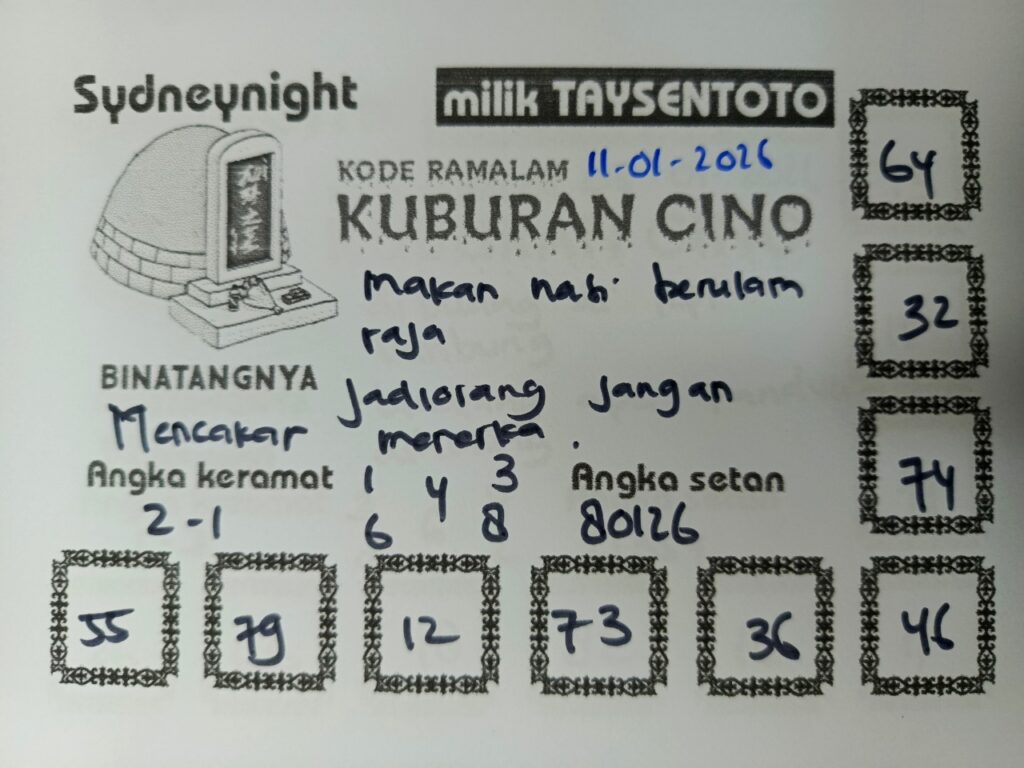 Sydneynight
milik TAYSENTOTO
KODE RAMALAM 11-01-2026
KUBURAN CINO
makan nasi berulam
raja
BINATANGNYA
Mencakar
Jadiorang jangan
menerka.
Angka keramat
2-1
1 4 3
6 8
Angka setan
80126
64
32
74
55 79 12 73 36 46